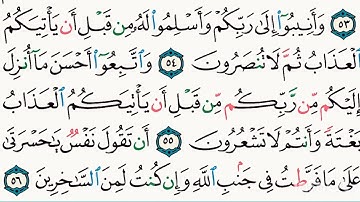 ٥٣ وَأَنِيبُوٓا۟ إِلَىٰ رَبِّكُمْ وَأَسْلِمُوا۟ لَهُۥ مِن قَبْلِ أَن يَأْتِيَكُمُ
ٱلْعَذَابُ ثُمَّ لَا تُنصَرُونَ ٥٤ وَٱتَّبِعُوٓا۟ أَحْسَنَ مَآ أُنزِلَ
إِلَيْكُم مِّن رَّبِّكُم مِّن قَبْلِ أَن يَأْتِيَكُمُ ٱلْعَذَابُ
بَغْتَةً وَأَنتُمْ لَا تَشْعُرُونَ ٥٥ أَن تَقُولَ نَفْسٌ يَٰحَسْرَتَىٰ
عَلَىٰ مَا فَرَّطتُ فِى جَنۢبِ ٱللَّهِ وَإِن كُنتُ لَمِنَ ٱلسَّٰخِرِينَ ٥٦